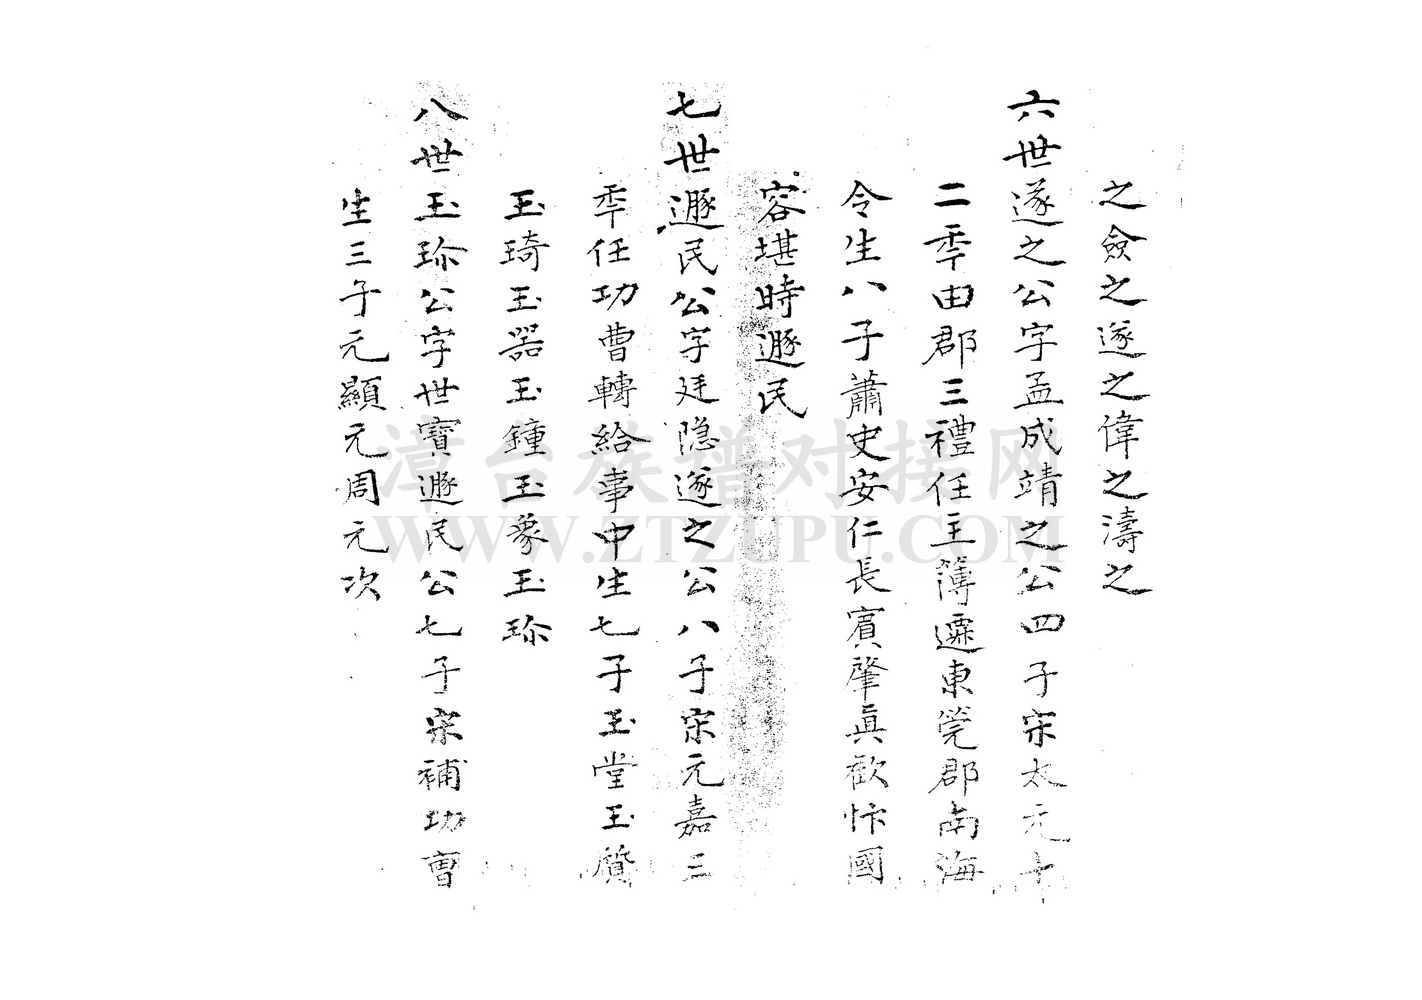 之僉之遂之偉之濤之
六世遂之公字孟成靖之公四子宋太元十
二秊由郡三禮任主簿遷東莞郡南海
令生八子蕭史安仁長賔肇眞歡忭國
容堪時遯民
七世遯民公字廷隐遂之公八子宋元嘉三
秊任功曹轉給事中生七子玉堂玉質
玉琦玉器玉鐘玉象玉珎
八世玉珎公字世寶遯民公七子宋補功曹
生三子元顯元周元次
漳台族谱对接网
WWW.ZTZUPU.COM